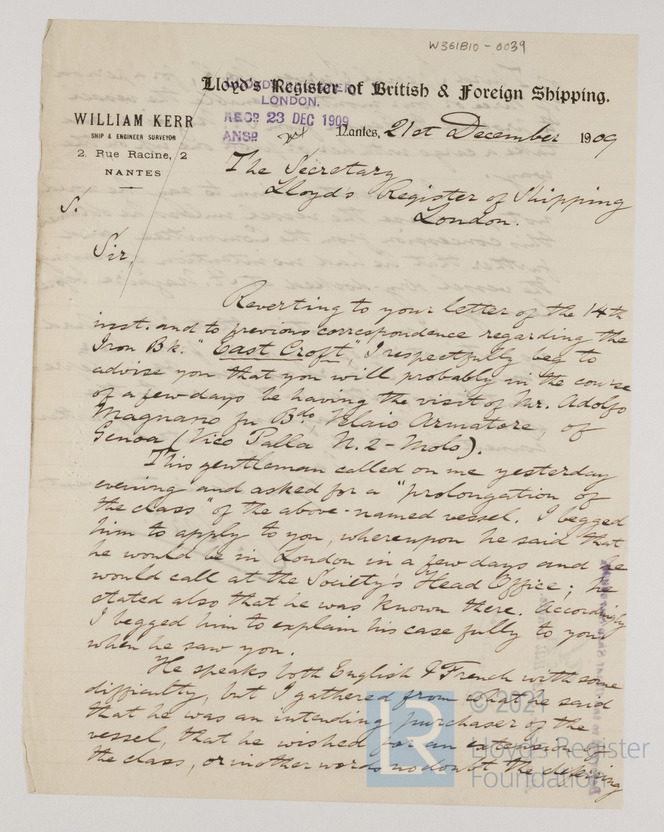 W361B10-0039
Lloyd's Register of British & Foreign Shipping.
LONDON.
RECD 23 DEC 1909
ANSD
WILLIAM KERR
SHIP & ENGINEER SURVEYOR
2, Rue Racine, 2
NANTES
Nantes, 21st December 1909
The Secretary
Lloyds Register of Shipping
London.
S.
Sir,
Reverting to your letter of the 14th
inst. and to previous correspondence regarding the
Iron Bk. "East Croft", I respectfully beg to
advise you that you will probably in the course
of a few days be having the visit of Mr. Adolfo
Magnano fu Bdo Velaio Armatore, of
Genoa (Vico Palla N. 2 - Molo).
This gentleman called on me yesterday
evening and asked for a "prolongation of
the class" of the above-named vessel. I begged
him to apply to you, whereupon he said that
he would be in London in a few days and he
would call at the Society's Head Office; he
stated also that he was known there. Accordingly
I begged him to explain his case fully to you
when he saw you.
He speaks both English & French with some
difficulty, but I gathered from what he said
that he was an intending purchaser of the
vessel, that he wished for an extension of
the class, or in other words no doubt the deferring
© 2021
Lloyd's Register
Foundation
LR